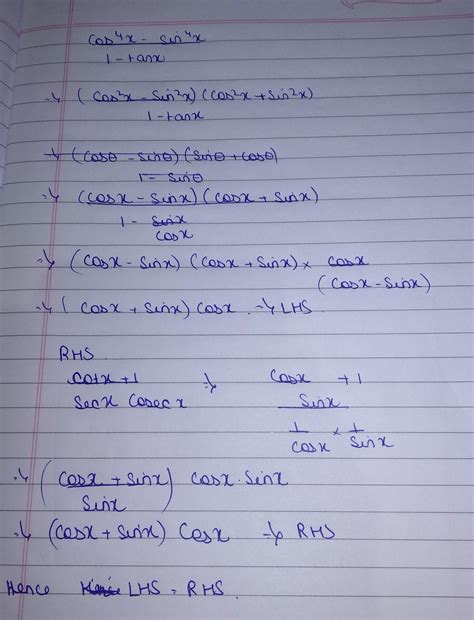 cos⁴x - sin⁴x
1 - tanx
→ (cos²x - sin²x) (cos²x + sin²x)
1 - tanx
→ (cosθ - sinθ) (sinθ + cosθ)
1 - sinθ
→ (cosx - sinx) (cosx + sinx)
1 - sinx
cosx
→ (cosx - sinx) (cosx + sinx) × cosx
(cosx - sinx)
→ (cosx + sinx) cosx → LHS
RHS
cotx + 1 → cosx + 1
secx cosecx sinx
1 × 1
cosx sinx
→ (cosx + sinx) cosx . sinx
sinx
→ (cosx + sinx) cosx → RHS
Hence LHS = RHS.